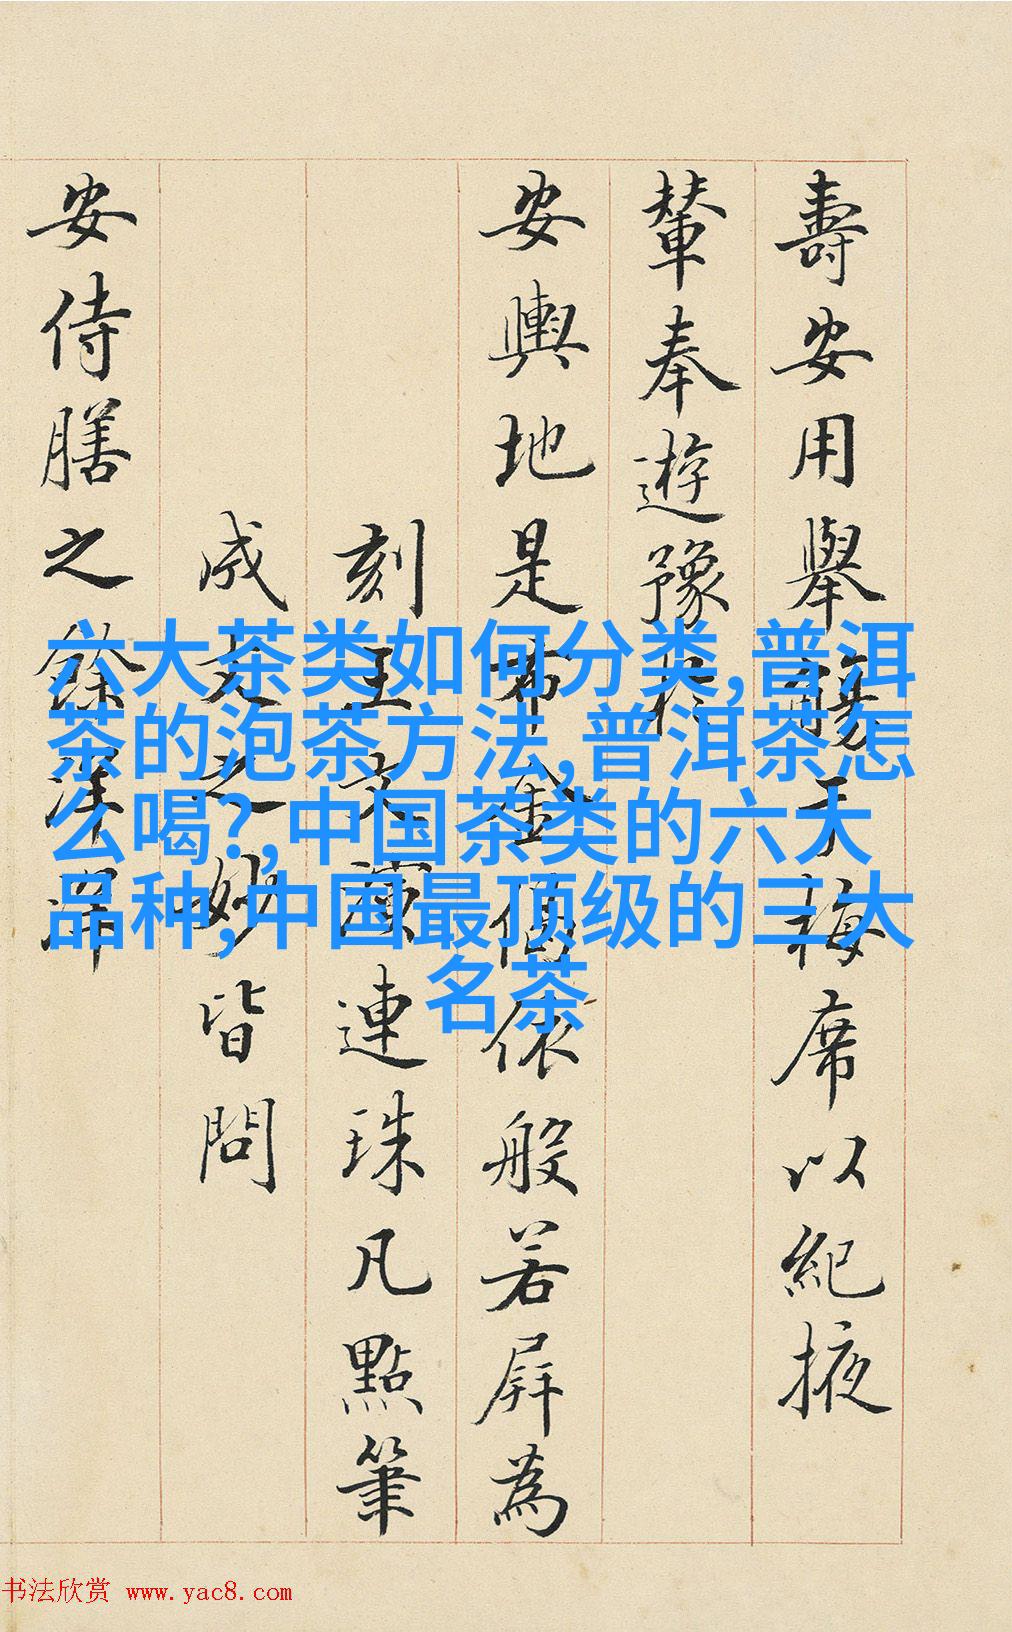 壽安用舉觴于梅席以紀掖
輦奉遊豫於
安輿地是布金偈依般若屏為
刻玉文演連珠凡點筆
成文之妙皆問
安侍膳之餘澤畀
六大茶类如何分类,普洱
茶的泡茶方法,普洱茶怎
么喝?,中国茶类的六大
品种,中国最顶级的三大
名茶
书法欣赏 www.yac8.com